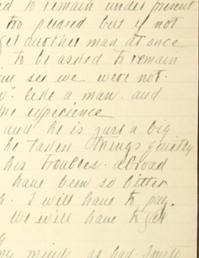 to remain under present
too pleased but if not
get another man at once
to be asked to remain
see we were not
like a man and
experience
and he is just a big
he takes things quietly
his troubles abroad
have been so bitter
I will have to pay
We will have to get
my mind as had